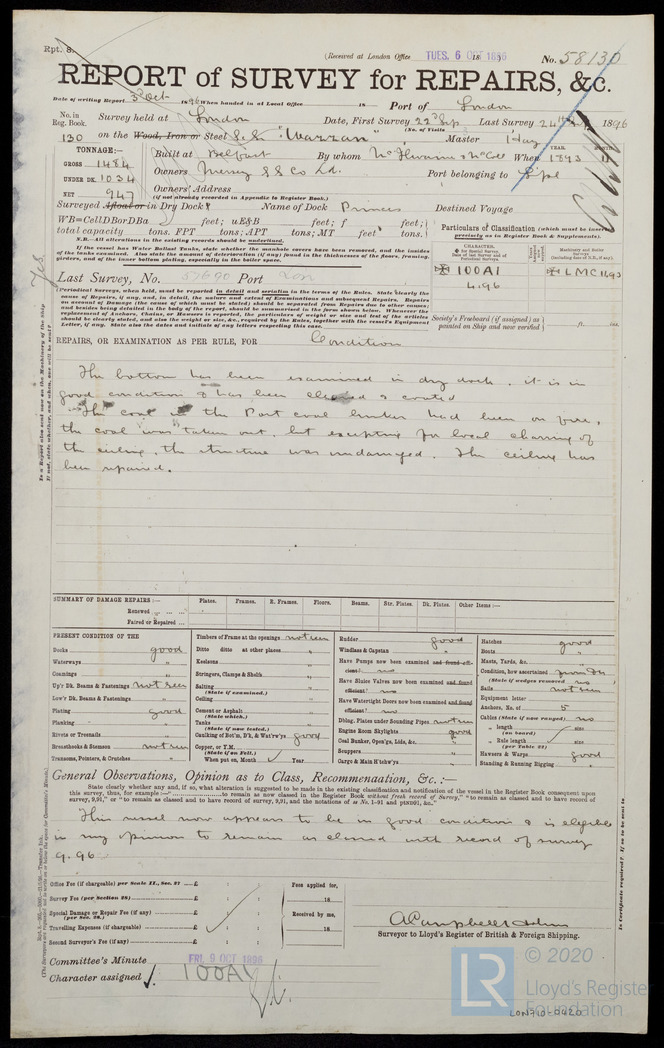 Rpt. 8.
(Received at London Office TUES. 6 OCT 1896
No. 58130
REPORT of SURVEY for REPAIRS, &c.
Date of writing Report 3 Oct 1896 When handed in at Local Office 18 Port of London
No. in Reg. Book. Survey held at London Date, First Survey 22 Sep Last Survey 24 1896
(No. of Visits
130 on the Wood, Iron or Steel "Warzan" Master Hay
TONNAGE:—
GROSS 1484
UNDER DK. 1034
NET 947
Built at Belfast By whom When 1893
Owners Mersey S S Co Ld. Port belonging to L'pool
Owners' Address
(if not already recorded in Appendix to Register Book.)
Surveyed Afloat or in Dry Dock Name of Dock Princes Destined Voyage
WB=CellDBorDBa feet; uE&B feet; f feet;
total capacity tons. FPT tons; APT tons; MT feet tons.
N.B.—All alterations in the existing records should be underlined.
If the vessel has Water Ballast Tanks, state whether the manhole covers have been removed, and the insides of the tanks examined. Also state the amount of deterioration (if any) found in the thicknesses of the floors, framing, girders, and of the inner bottom plating, especially in the boiler space.
Particulars of Classification (which must be inserted precisely as in Register Book & Supplements).
100A1
4.96
LMC 11,93
Last Survey, No. 57690 Port Lon
(Periodical Surveys, when held, must be reported in detail and seriatim in the terms of the Rules. State clearly the cause of Repairs, if any, and, in detail, the nature and extent of Examinations and subsequent Repairs. Repairs on account of Damage (the cause of which must be stated) should be separated from Repairs due to other causes; and besides being detailed in the body of the report, should be summarised in the form shown below. Whenever the replacement of Anchors, Chains, or Hawsers is reported, the particulars of weight or size and test of the articles should be clearly stated, and also the weight or size, &c., required by the Rules, together with the vessel's Equipment Letter, if any. State also the dates and initials of any letters respecting this case.
Society's Freeboard (if assigned) as painted on Ship and now verified ft. ins.
REPAIRS, OR EXAMINATION AS PER RULE, FOR Condition
The bottom has been examined in dry dock, it is in
good condition & has been cleaned & coated
The coal in the Port coal bunker had been on fire,
the coal was taken out, but excepting for local charring of
the ceiling, the structure was undamaged. The ceiling has
been repaired.
SUMMARY OF DAMAGE REPAIRS:— Plates. Frames. R. Frames. Floors. Beams. Str. Plates. Dk. Plates. Other Items:—
Renewed
Faired or Repaired
PRESENT CONDITION OF THE
Decks good
Waterways "
Coamings "
Up'r Dk. Beams & Fastenings not seen
Low'r Dk. Beams & Fastenings "
Plating good
Planking
Rivets or Treenails "
Breasthooks & Stemson not seen
Transoms, Pointers, & Crutches "
Timbers of Frame at the openings not seen
Ditto ditto at other places "
Keelsons "
Stringers, Clamps & Shelfs "
Salting (State if examined.)
Ceiling "
Cement or Asphalt (State which.)
Tanks (State if now tested.)
Caulking of Bot'm, D'k, & Wat'rw'ys good
Copper, or Y.M. (State if on Felt.)
When put on, Month Year
Rudder good
Windlass & Capstan "
Have Pumps now been examined and found efficient? no
Have Sluice Valves now been examined and found efficient? no
Have Watertight Doors now been examined and found efficient? no
Dblng. Plates under Sounding Pipes not seen
Engine Room Skylights good
Coal Bunker, Open'gs, Lids, &c. "
Scuppers "
Cargo & Main H'tchw'ys "
Hatches good
Boats "
Masts, Yards, &c. "
Condition, how ascertained from Dk
(State if wedges removed no)
Sails not seen
Equipment letter
Anchors, No. of 5
Cables (State if now ranged) no
" length (on board) size
" Rule length (per Table 22) size
Hawsers & Warps good
Standing & Running Rigging "
General Observations, Opinion as to Class, Recommendation, &c. :—
State clearly whether and, if so, what alteration is suggested to be made in the existing classification and notification of the vessel in the Register Book consequent upon this survey, thus, for example:—" to remain as now classed in the Register Book without fresh record of Survey," "to remain as classed and to have record of survey, 9,91," or "to remain as classed and to have record of survey, 9,91, and the notations of ss No. 1-91 and ptsND91, &c."
This vessel now appears to be in good condition & is eligible
in my opinion to remain as classed with record of survey
9.96
Office Fee (if chargeable) per Scale II., Sec. 27 £
Survey Fee (per Section 28) £
Special Damage or Repair Fee (if any) (per Sec. 28.) £
Travelling Expenses (if chargeable) £
Second Surveyor's Fee (if any) £
Fees applied for,
18
Received by me,
18
A Campbell
Surveyor to Lloyd's Register of British & Foreign Shipping.
Committee's Minute FRI. 9 OCT 1896
Character assigned 100A1
Is a Report also sent now on the Machinery of the Ship Yes
If not, state whether, and when, one will be sent?
Is Certificate required? If so, to be sent to
© 2020
LR
Lloyd's Register
Foundation
LON710-0420